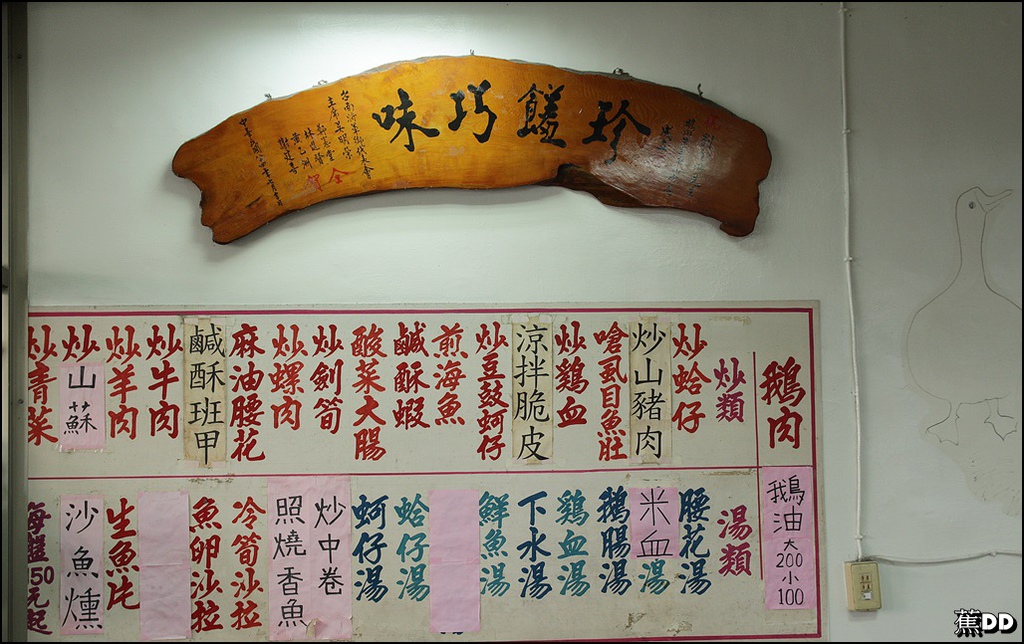 珍饈巧味
台南沙茶街代天會
全
賀
鵝肉
炒類
炒蛤仔
炒山豬肉
嗆虱目魚肚
炒鷄血
涼拌脆皮
炒豆鼓蚵仔
煎海魚
鹹酥蝦
酸菜大腸
炒劍筍
炒螺肉
麻油腰花
鹹酥班甲
炒牛肉
炒羊肉
炒山蘇
炒青菜
鵝油大200小100
湯類
腰花湯
米血湯
鵝腸湯
鷄血湯
下水湯
鮮魚湯
蛤仔湯
蚵仔湯
炒中卷
照燒香魚
冷筍沙拉
魚卵沙拉
生魚片
沙魚燻
每盤50元起
蕉DD